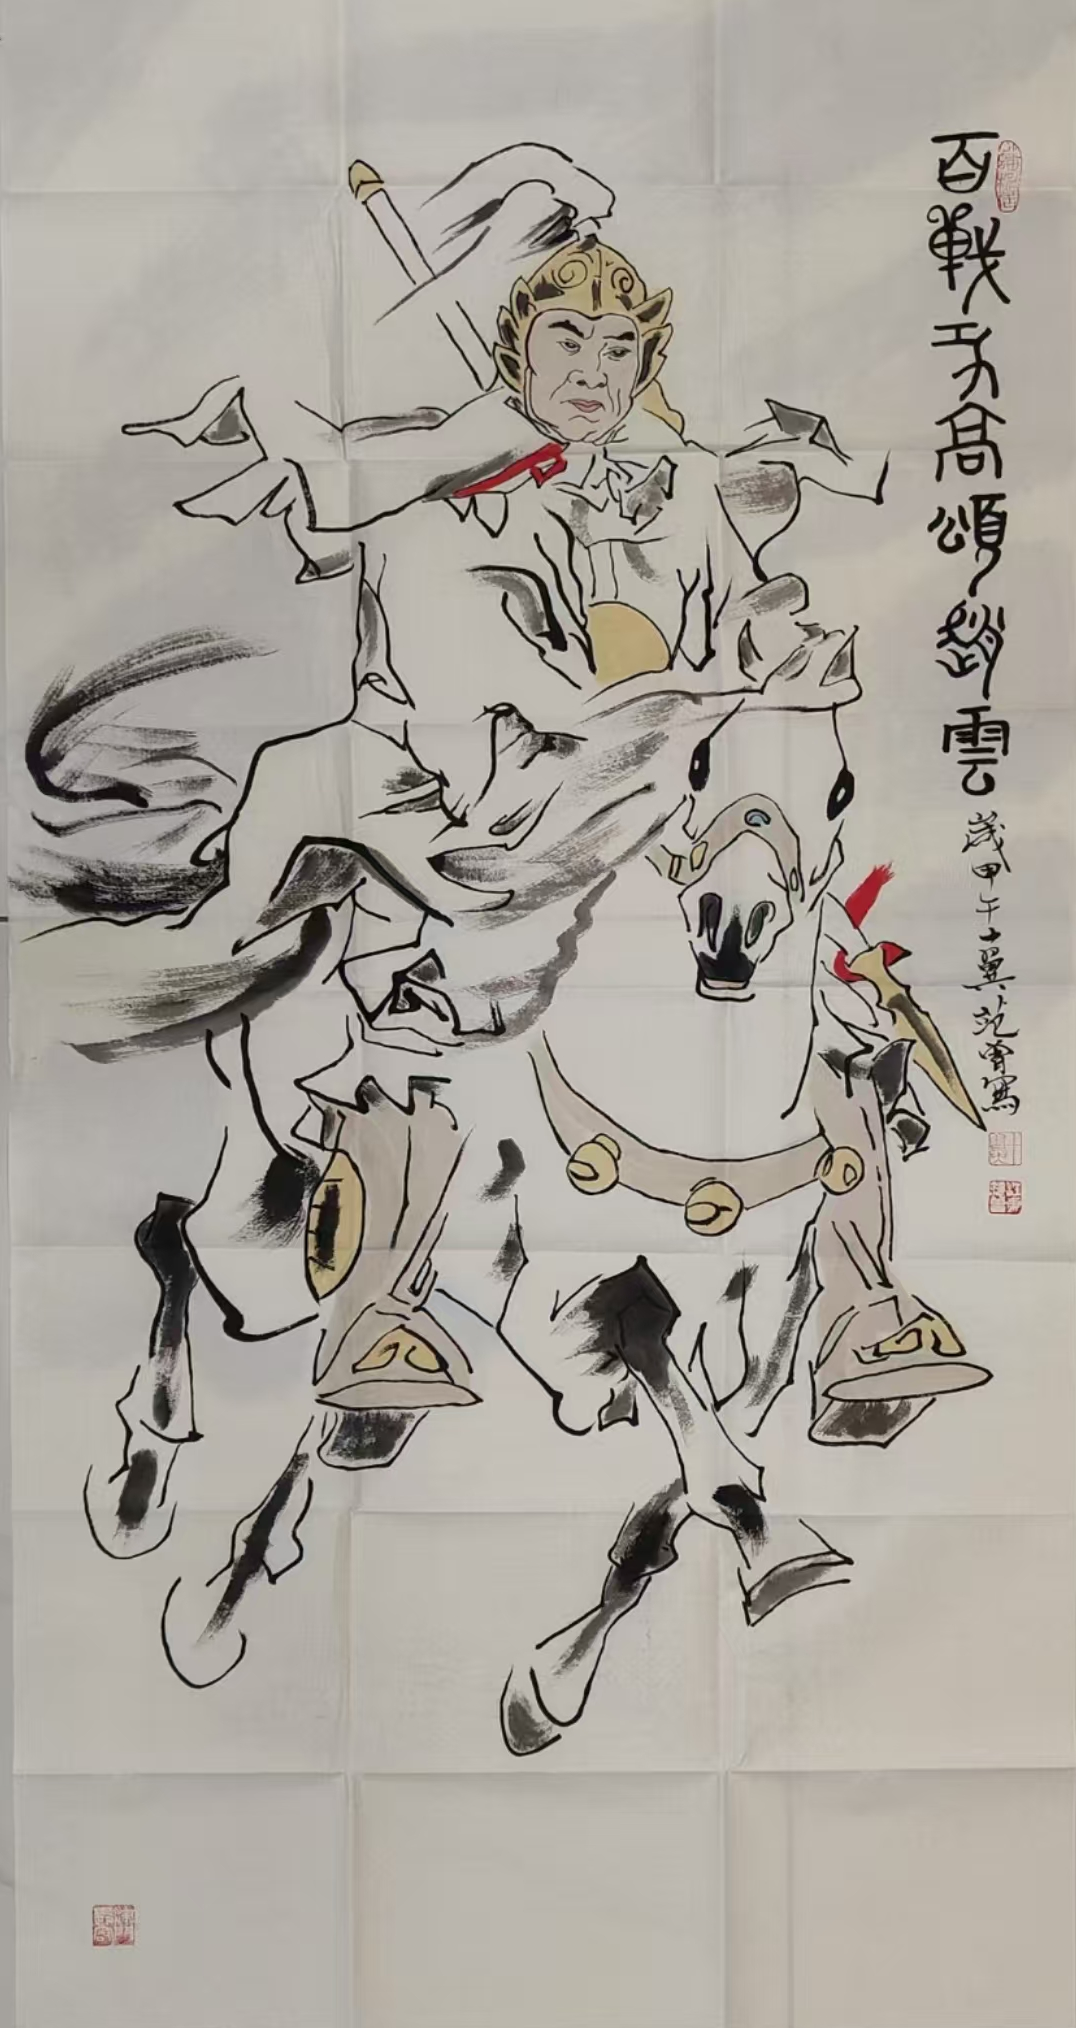 百戰功高頌趙雲
歲甲午十翼范曾寫